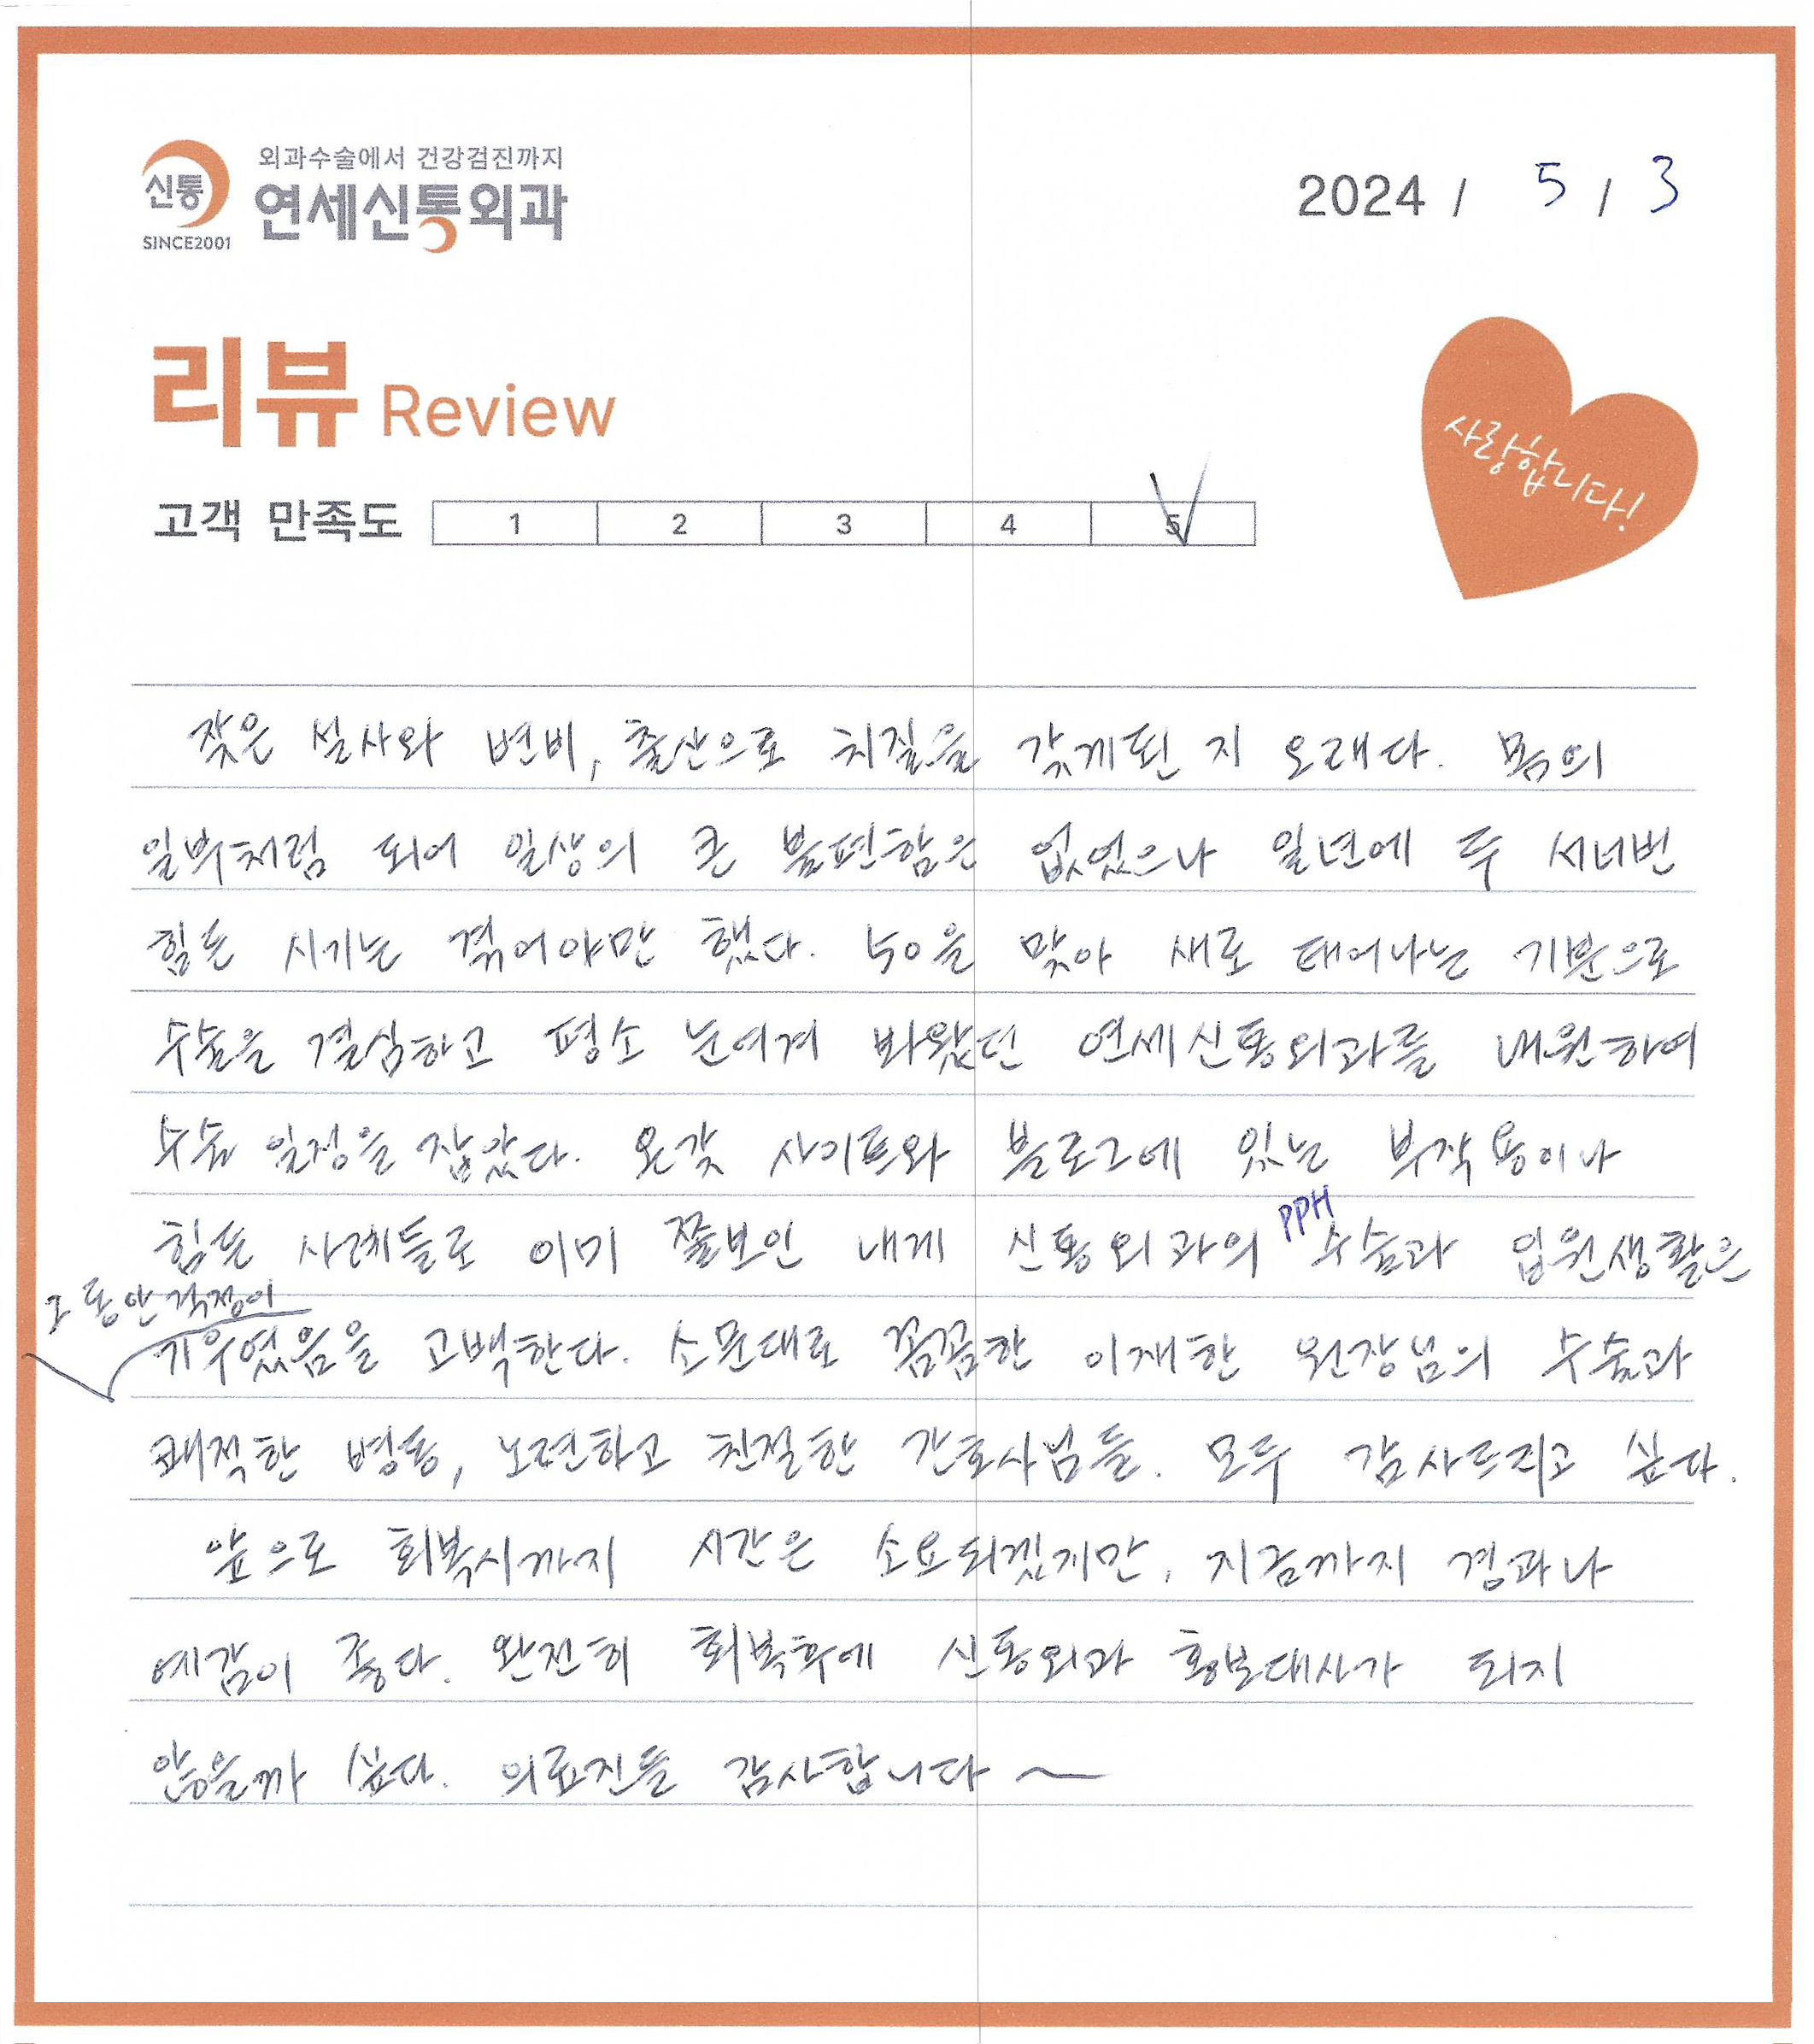 신통
SINCE2001
외과수술에서 건강검진까지
연세신통외과
2024 / 5 / 3
리뷰 Review
사랑합니다!
고객 만족도 1 2 3 4 5
잦은 설사와 변비, 출산으로 치질을 갖게된 지 오래다. 몸의
일부처럼 되어 일상의 큰 불편함은 없었으나 일년에 두 서너번
힘든 시기는 겪어야만 했다. 50을 맞아 새로 태어나는 기분으로
수술을 결심하고 평소 눈여겨 봐왔던 연세신통외과를 내원하여
수술 일정을 잡았다. 온갖 사이트와 블로그에 있는 부작용이나
힘든 사례들로 이미 쫄보인 내게 신통외과의 PPH 수술과 입원생활은
그동안 걱정이
기우였음을 고백한다. 소문대로 꼼꼼한 이재한 원장님의 수술과
쾌적한 병동, 노련하고 친절한 간호사님들. 모두 감사드리고 싶다.
앞으로 회복시까지 시간은 소요되겠지만, 지금까지 경과나
예감이 좋다. 완전히 회복후에 신통외과 홍보대사가 되지
않을까 싶다. 의료진들 감사합니다~